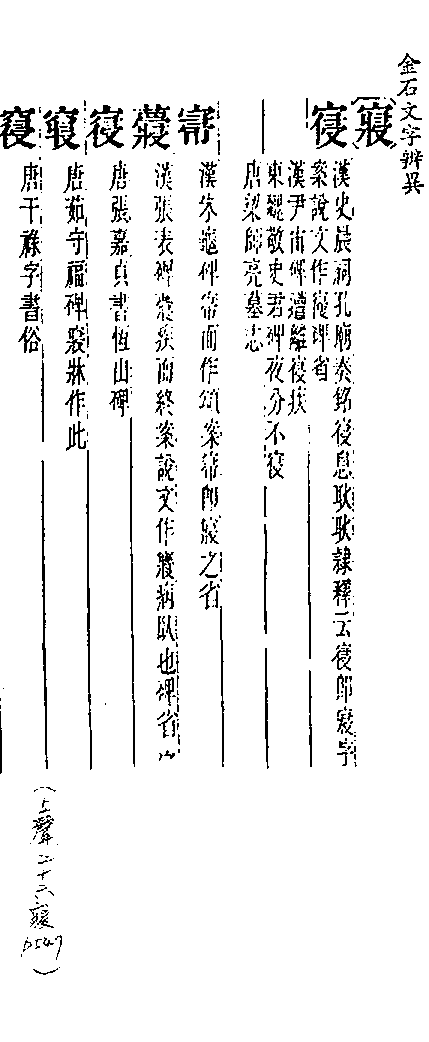 金石文字辨異
【寢】
寑
漢史晨祠孔廟奏銘寑息耿耿隸釋云寑卽寢字
案說文作寑碑省
漢尹宙碑遭離寑疾
東魏敬史君碑夜分不寑
唐梁師亮墓志
漢朱龜碑帚面作頌案帚卽寢之省
漢張表碑疾而終案說文作病臥也碑省宀
唐張嘉貞書恆山碑
唐茹守福碑寢牀作此
唐干祿字書俗
（上聲二十六、寢 P547）